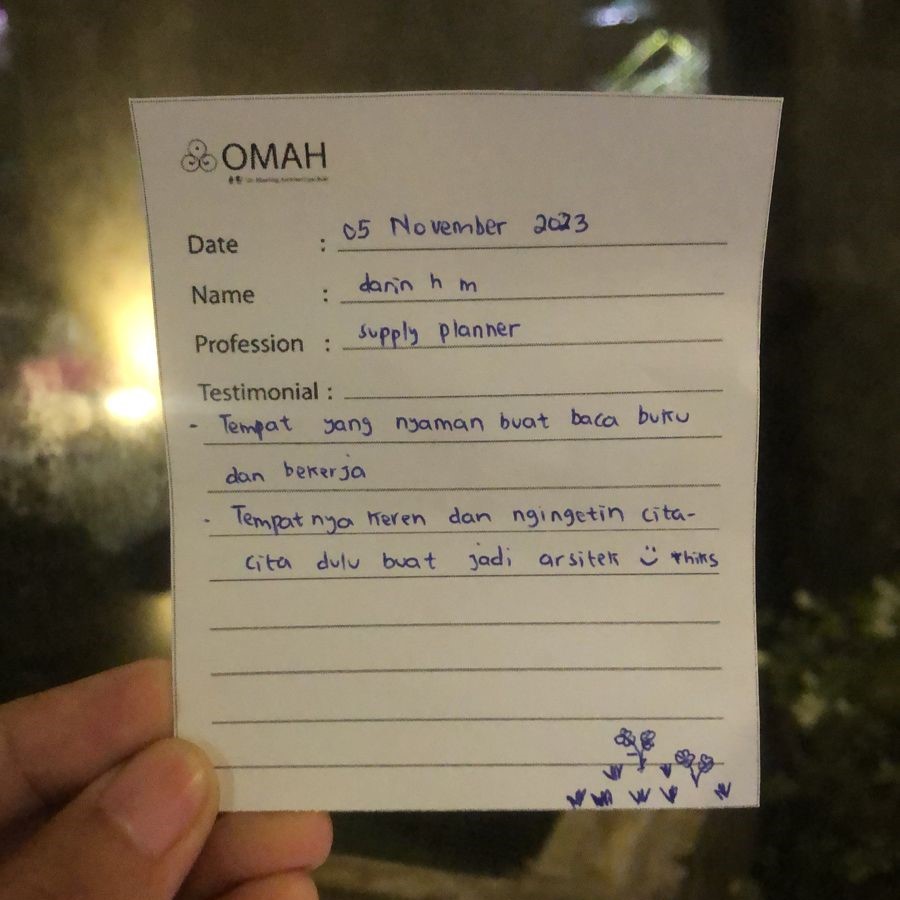 OMAH
Date : 05 November 2023
Name : darin h m
Profession : supply planner
Testimonial :
- Tempat yang nyaman buat baca buku
dan bekerja
- Tempatnya keren dan ngingetin cita-
cita dulu buat jadi arsitek *hiks